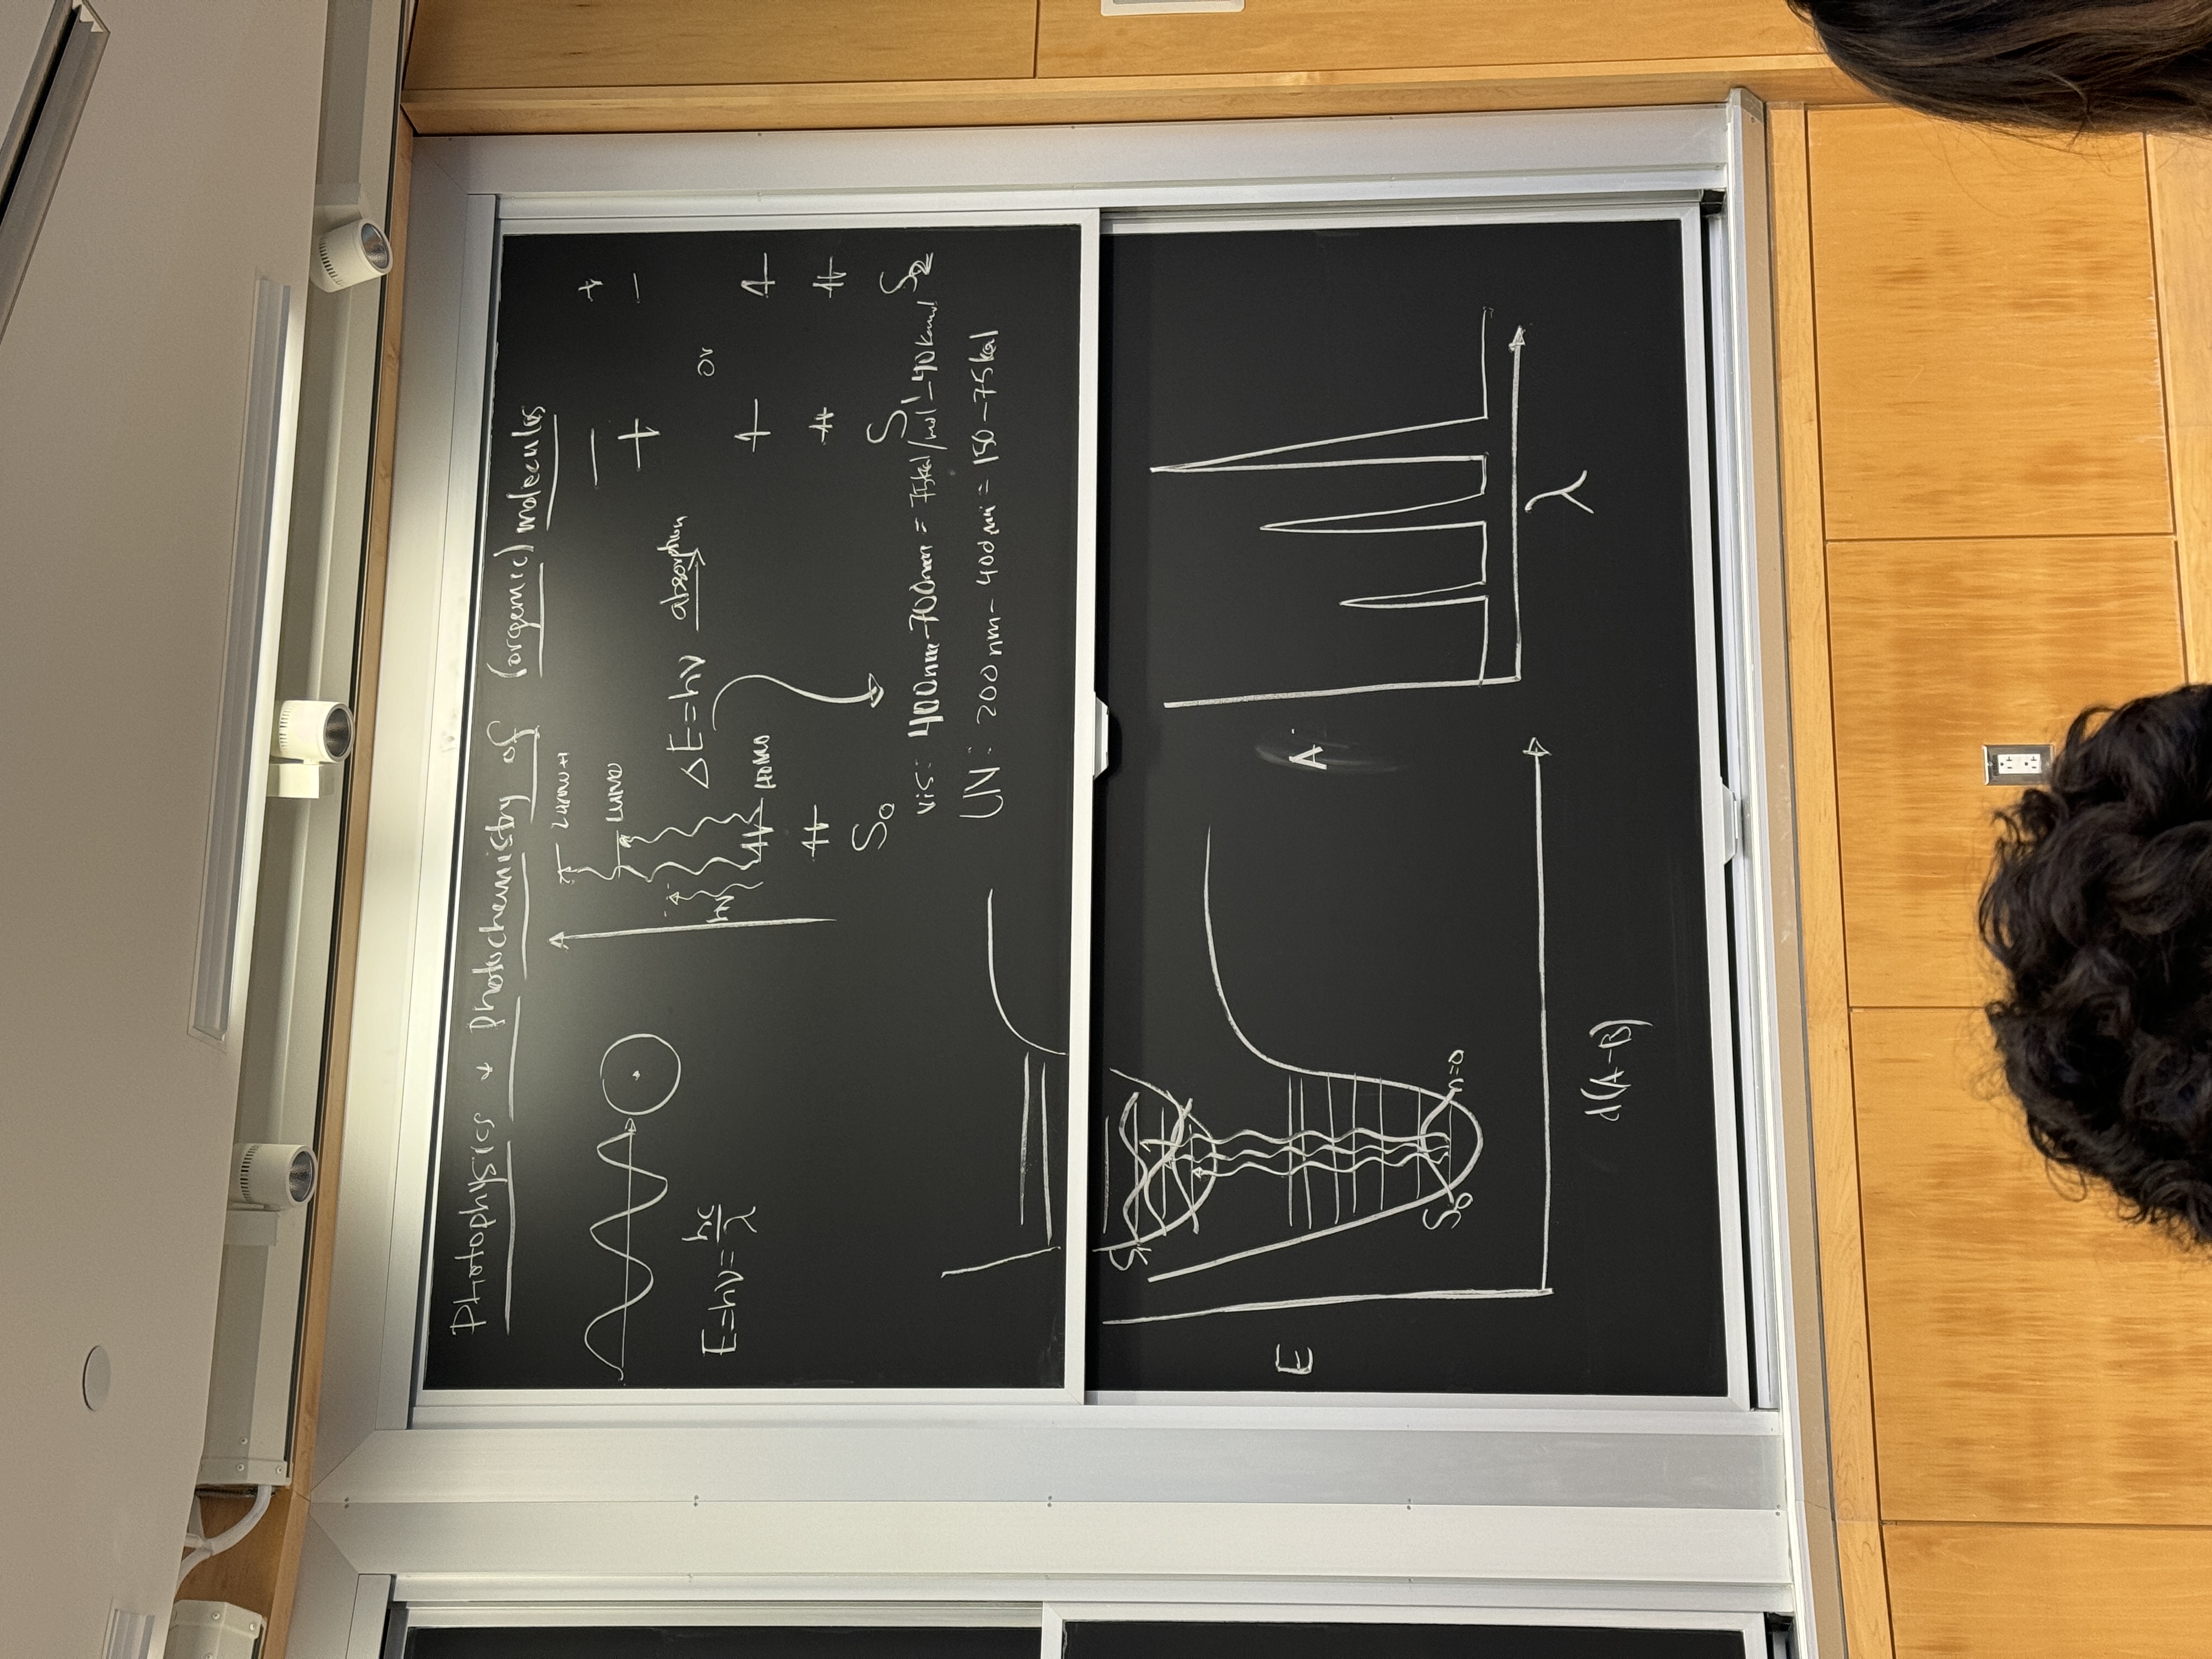 Photophysics + Photochemistry of (organic) molecules
LUMO+1
LUMO
E=hν=hc/λ
hν
ΔE=hν
absorption
or
HOMO
S₀
S₁
S₂
vis: 400nm-700nm = 75kcal/mol - 40kcal/mol
UV: 200nm - 400nm = 150-75kcal
S₁
E
A
S₀
n=0
λ
d(A-B)